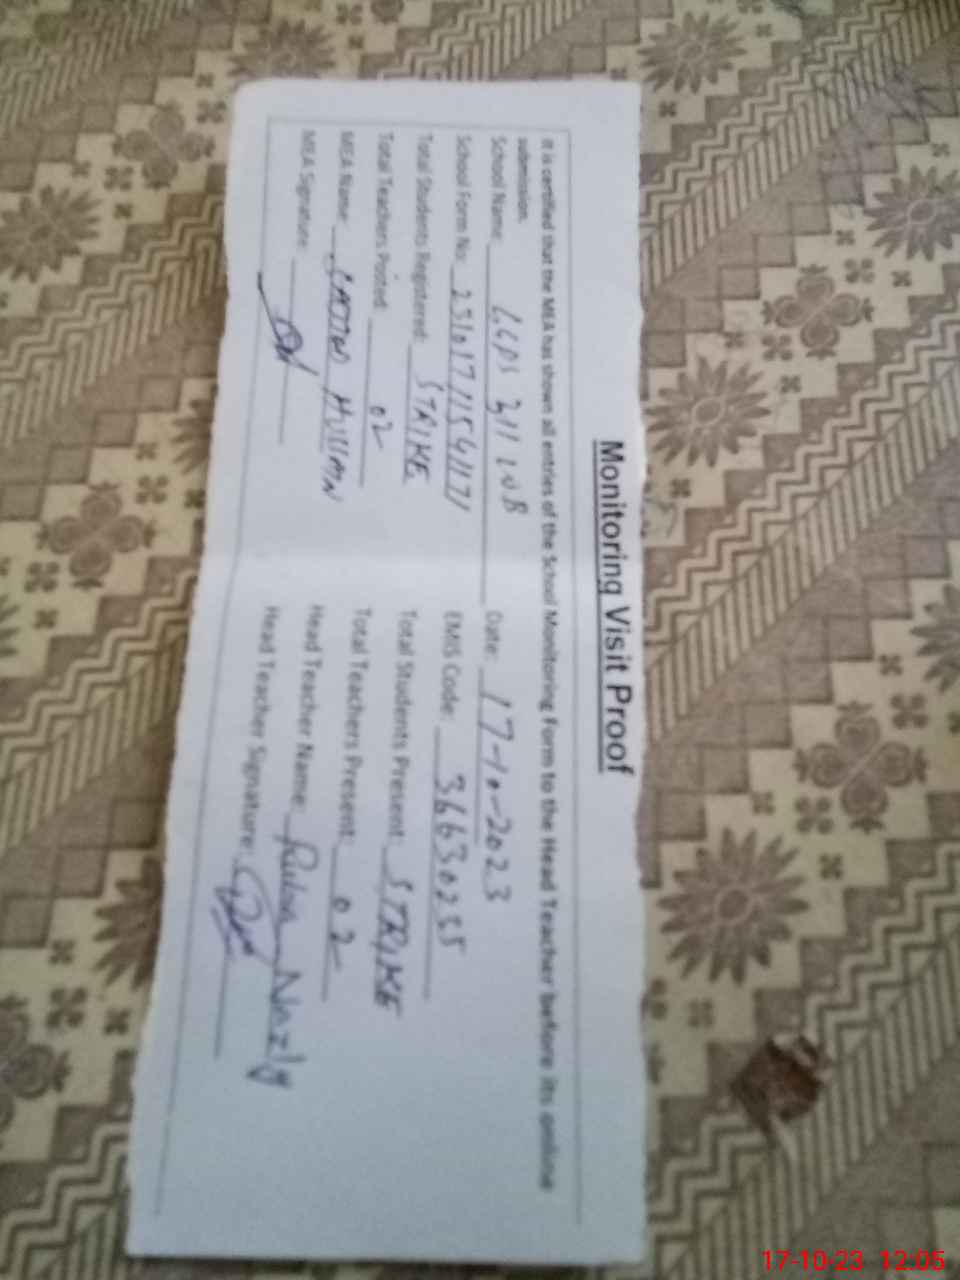 Monitoring Visit Proof
It is certified that the MEA has shown all entries of the School Monitoring Form to the Head Teacher before its online
submission.
School Name: GPS 311 WB Date: 17-10-2023
School Form No: EMIS Code: 36630255
Total Students Registered: STRIKE Total Students Present: STRIKE
Total Teachers Posted: 02 Total Teachers Present: 02
MEA Name: Head Teacher Name:
MEA Signature: Head Teacher Signature:
17-10-23 12:05